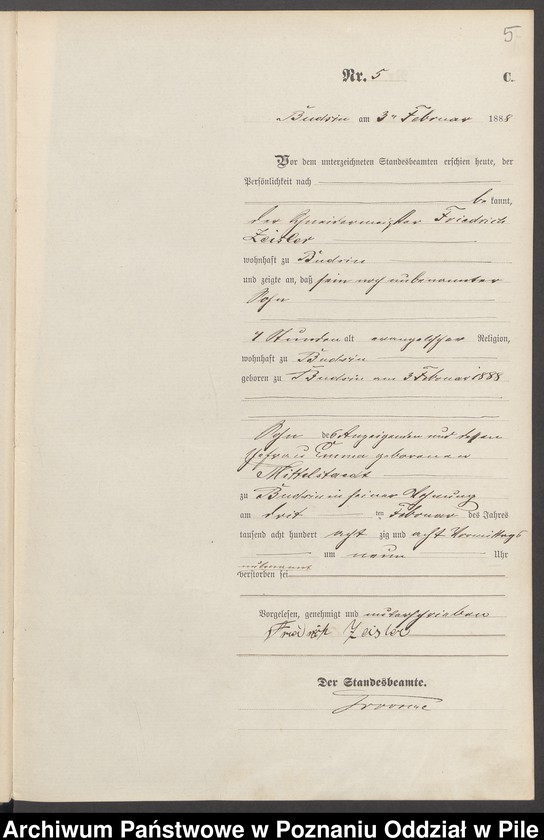 5
Nr. 5 C.
Budsin am 3ten Februar 1888
Vor dem unterzeichneten Standesbeamten erschien heute, der
Persönlichkeit nach
be kannt,
der Schneidermeister Friedrich
Zeisler
wohnhaft zu Budsin
und zeigte an, daß sein noch unbenannter
Sohn
Stunden alt evangelischer Religion,
wohnhaft zu Budsin
geboren zu Budsin am 3 Februar 1888
Sohn des Anzeigenden und dessen
Ehefrau Emma geborenen
Mittelstaedt
zu Budsin in seiner Wohnung
am drit ten Februar des Jahres
tausend acht hundert acht zig und acht Vormittags
um neun Uhr
verstorben sei
Vorgelesen, genehmigt und unterschrieben
Friedrich Zeisler
Der Standesbeamte.
Archiwum Państwowe w Poznaniu Oddział w Pile